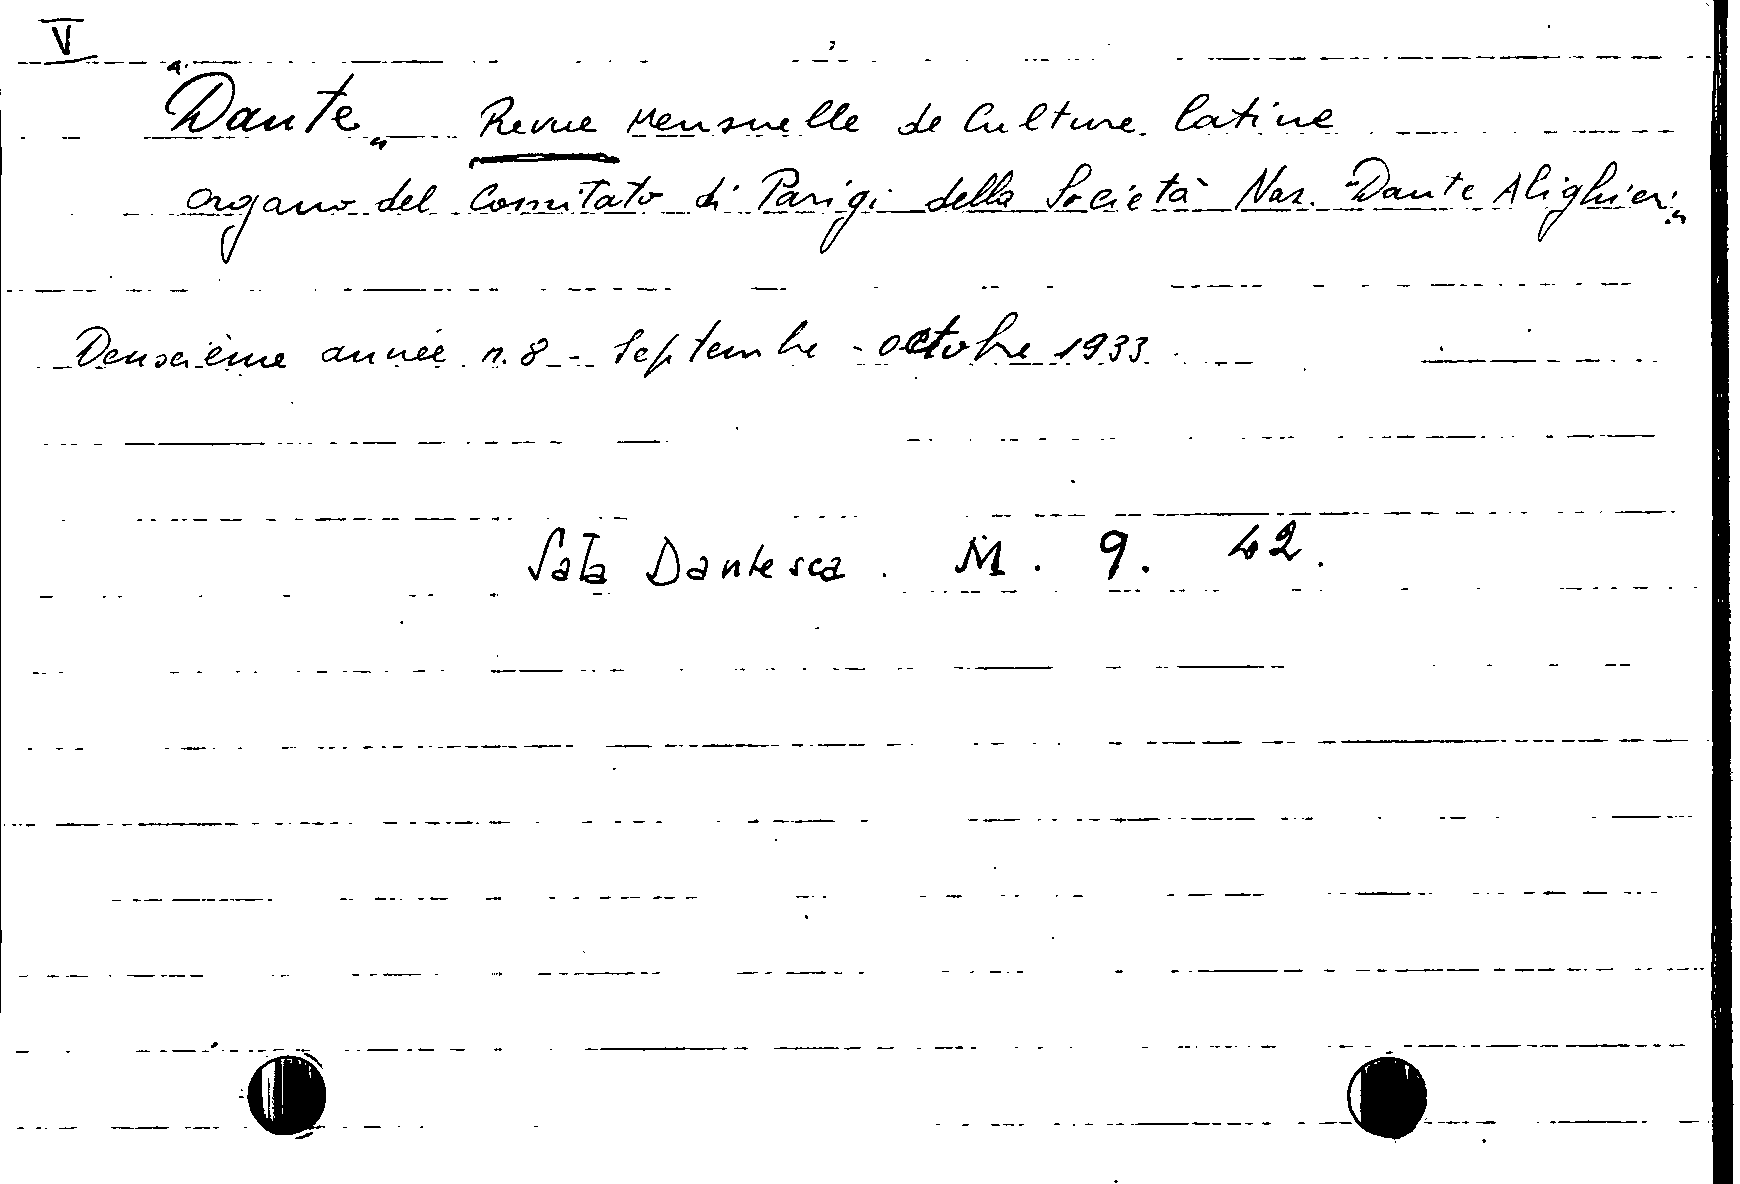 V
"Dante" Revue Mensuelle de Culture latine
organo del Comitato di Parigi della Società Naz. "Dante Alighieri"
Deuxième année n. 8 - Septembre - octobre 1933
Sala Dantesca. M. 9. 42.